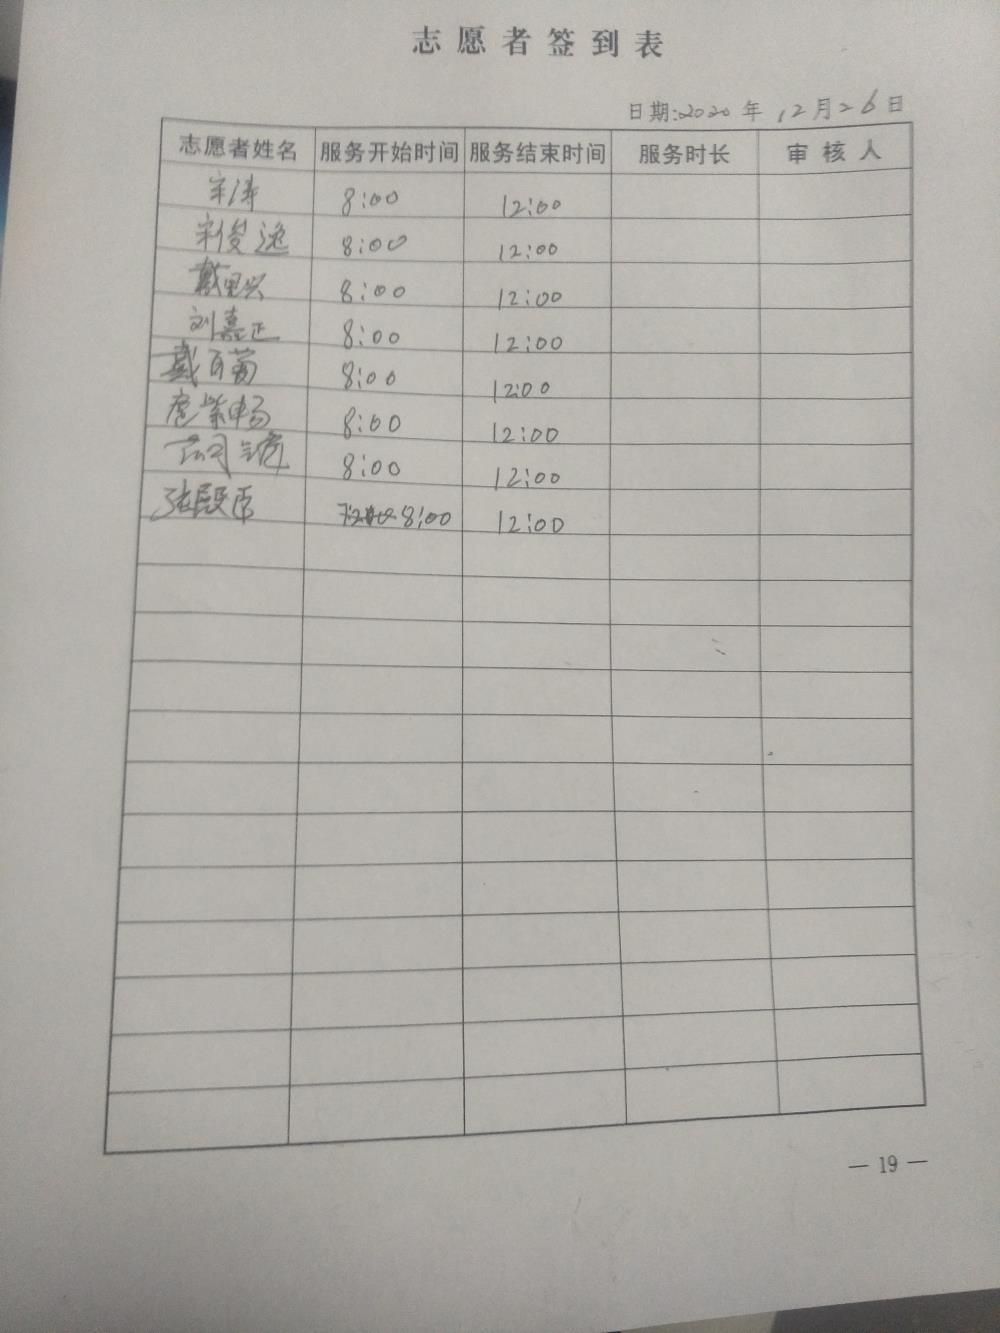 志愿者签到表
日期:2020年12月26日
志愿者姓名 服务开始时间 服务结束时间 服务时长 审核人
宋涛 8:00 12:00
宋俊逸 8:00 12:00
戴思兴 8:00 12:00
刘嘉正 8:00 12:00
戴百萄 8:00 12:00
唐紫畅 8:00 12:00
8:00 12:00
张殷 8:00 12:00
— 19 —